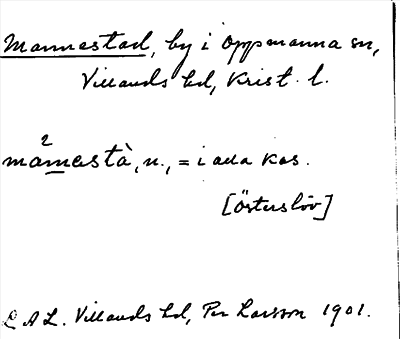 Mannestad, by i Oppmanna sn,
Villands hd, Krist. l.
2
månestà, n., = i alla kas.
[Österslöv]
L A L. Villands hd, Per Larsson 1901.